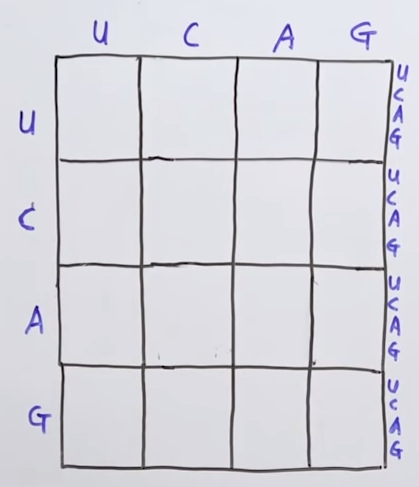 U C A G
U
U
C
A
G
C
U
C
A
G
A
U
C
A
G
G
U
C
A
G